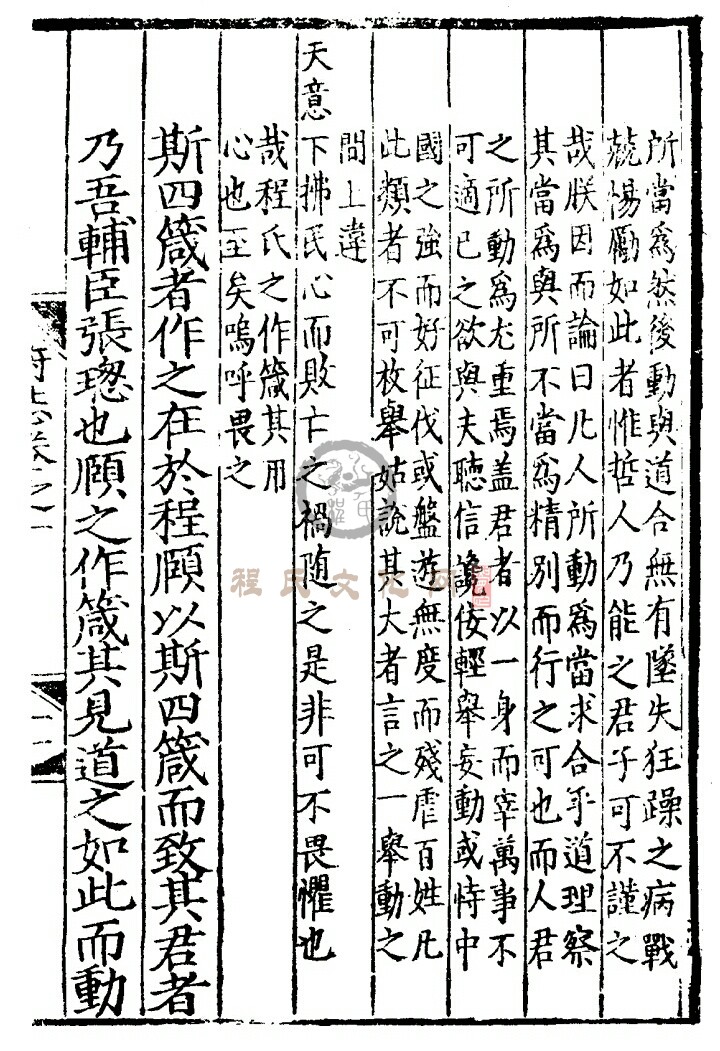 所當爲然後動與道合無有墜失狂躁之病戰
兢惕勵如此者惟哲人乃能之君子可不謹之
哉朕因而論曰凡人所動爲當求合乎道理察
其當爲與所不當爲精別而行之可也而人君
之所動爲尤重焉盖君者以一身而宰萬事不
可適已之欲與夫聽信讒佞輕舉妄動或恃中
國之強而好征伐或盤遊無度而殘虐百姓凡
此類者不可枚舉姑說其大者言之一舉動之
間上違
天意下拂民心而敗亡之禍随之是非可不畏懼也
哉程氏之作箴其用
心也至矣嗚呼畏之
斯四箴者作之在於程頤以斯四箴而致其君者
乃吾輔臣張璁也頤之作箴其見道之如此而動
程氏文化网